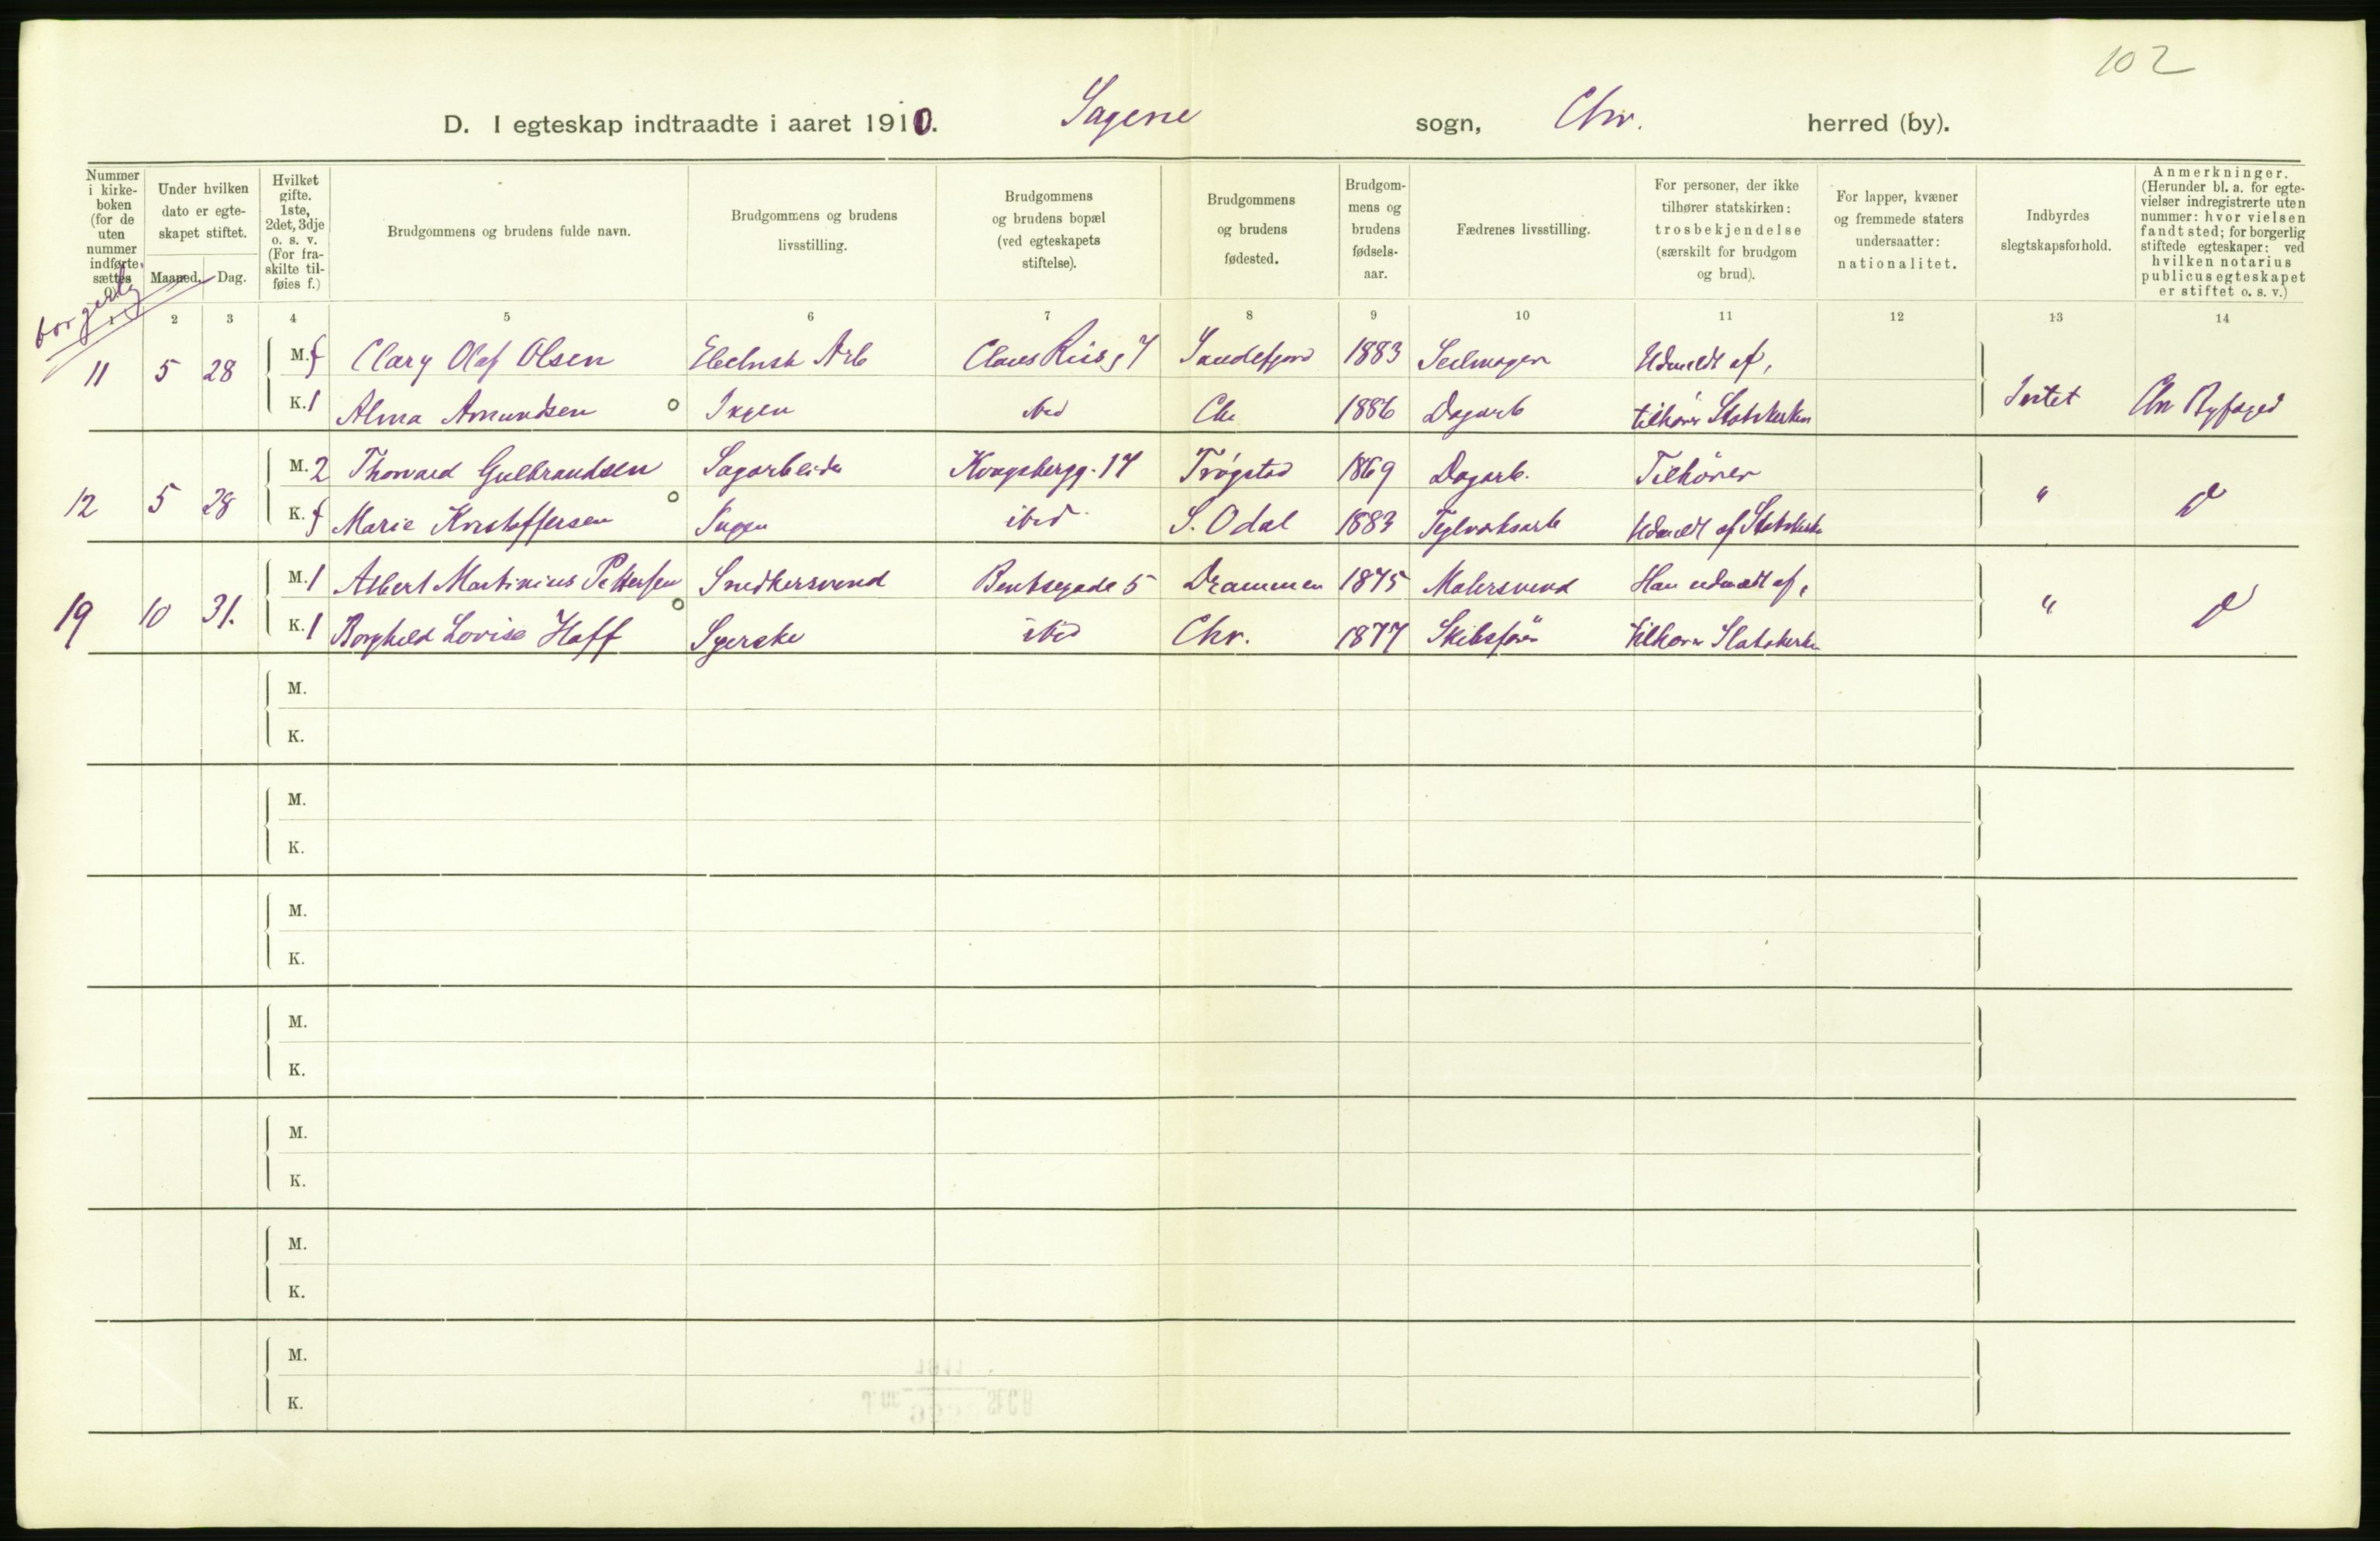 102
D. I egteskap indtraadte i aaret 1910. Sagene sogn, Chr. herred (by).
Nummer i kirke-boken (for de uten nummer indførte, sættes 0).
Under hvilken dato er egte-skapet stiftet.
Maaned. Dag.
Hvilket gifte. 1ste, 2det, 3dje o. s. v. (For fra-skilte til-føies f.)
Brudgommens og brudens fulde navn.
Brudgommens og brudens livsstilling.
Brudgommens og brudens bopæl (ved egteskapets stiftelse).
Brudgommens og brudens fødested.
Brudgom-mens og brudens fødsels-aar.
Fædrenes livsstilling.
For personer, der ikke tilhører statskirken: trosbekjendelse (særskilt for brudgom og brud).
For lapper, kvæner og fremmede staters undersaatter: nationalitet.
Indbyrdes slegtskapsforhold.
Anmerkninger. (Herunder bl. a. for egte-vielser indregistrerte uten nummer: hvor vielsen fandt sted; for borgerlig stiftede egteskaper: ved hvilken notarius publicus egteskapet er stiftet o. s. v.)
borgerlig
2 3 4 5 6 7 8 9 10 11 12 13 14
11 5 28 M. f Clary Olaf Olsen Arb Claus Riis g 7 Sandefjord 1883 Seilmager Udmeldt af,
K. 1 Alma Amundsen o Ingen ibid Chr 1886 Dagarb tilhører Statskirken Intet Chr Byfoged
12 5 28 M. 2 Thorvald Gulbrandsen Sagarbeider Kongsbergg. 17 Trøgstad 1869 Dagarb. Tilhører
K. f Marie Kristoffersen o Ingen ibid S. Odal 1883 Teglverksarb Udmeldt af Statskirke " D
19 10 31. M. 1 Albert Martinius Pettersen Snedkersvend Bentsegade 5 Drammen 1875 Malersvend Han udmeldt af,
K. 1 Borghild Lovise Hoff o Syerske ibid Chr. 1877 Skibsfører tilhører Statskirken " D
M.
K.
M.
K.
M.
K.
M.
K.
M.
K.
M.
K.
M.
K.